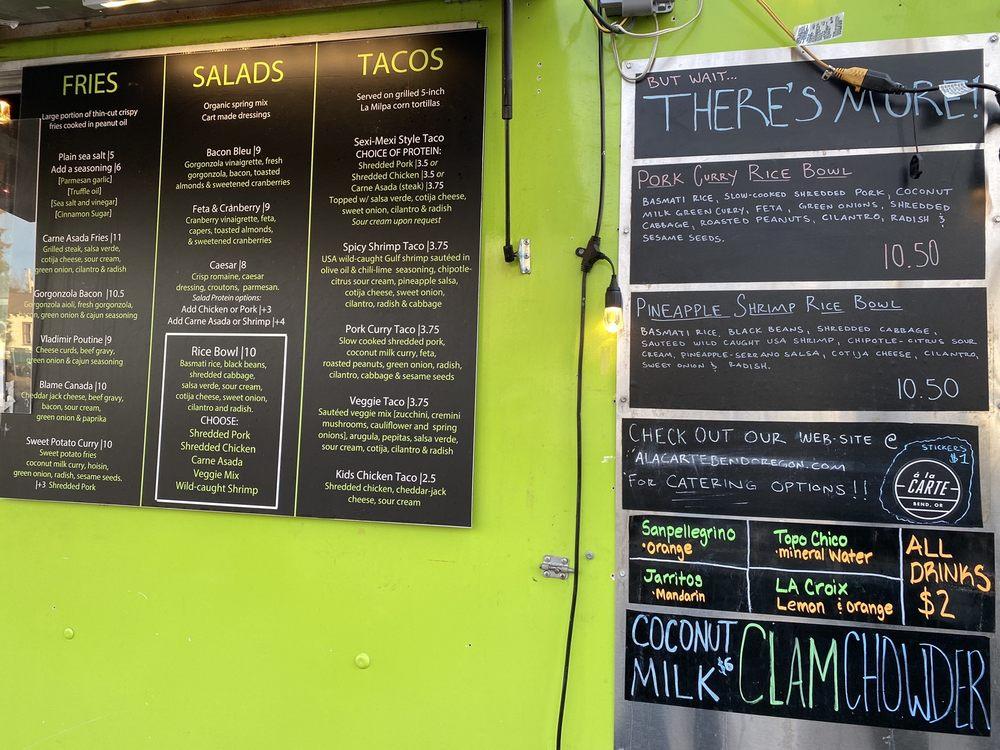 FRIES
Large portion of thin-cut crispy
fries cooked in peanut oil
Plain sea salt |5
Add a seasoning |6
[Parmesan garlic]
[Truffle oil]
[Sea salt and vinegar]
[Cinnamon Sugar]
Carne Asada Fries |11
Grilled steak, salsa verde,
cotija cheese, sour cream,
green onion, cilantro & radish
Gorgonzola Bacon |10.5
Gorgonzola aioli, fresh gorgonzola,
green onion & cajun seasoning
Vladimir Poutine |9
Cheese curds, beef gravy,
green onion & cajun seasoning
Blame Canada |10
Cheddar jack cheese, beef gravy,
bacon, sour cream,
green onion & paprika
Sweet Potato Curry |10
Sweet potato fries
coconut milk curry, hoisin,
green onion, radish, sesame seeds.
|+3 Shredded Pork
SALADS
Organic spring mix
Cart made dressings
Bacon Bleu |9
Gorgonzola vinaigrette, fresh
gorgonzola, bacon, toasted
almonds & sweetened cranberries
Feta & Cranberry |9
Cranberry vinaigrette, feta,
capers, toasted almonds,
& sweetened cranberries
Caesar |8
Crisp romaine, caesar
dressing, croutons, parmesan.
Salad Protein options:
Add Chicken or Pork |+3
Add Carne Asada or Shrimp |+4
Rice Bowl |10
Basmati rice, black beans,
shredded cabbage,
salsa verde, sour cream,
cotija cheese, sweet onion,
cilantro and radish.
CHOOSE:
Shredded Pork
Shredded Chicken
Carne Asada
Veggie Mix
Wild-caught Shrimp
TACOS
Served on grilled 5-inch
La Milpa corn tortillas
Sexi-Mexi Style Taco
CHOICE OF PROTEIN:
Shredded Pork |3.5 or
Shredded Chicken |3.5 or
Carne Asada (steak) |3.75
Topped w/ salsa verde, cotija cheese,
sweet onion, cilantro & radish
Sour cream upon request
Spicy Shrimp Taco |3.75
USA wild-caught Gulf shrimp sautéed in
olive oil & chili-lime seasoning, chipotle-
citrus sour cream, pineapple salsa,
cotija cheese, sweet onion,
cilantro, radish & cabbage
Pork Curry Taco |3.75
Slow cooked shredded pork,
coconut milk curry, feta,
roasted peanuts, green onion, radish,
cilantro, cabbage & sesame seeds
Veggie Taco |3.75
Sautéed veggie mix [zucchini, cremini
mushrooms, cauliflower and spring
onions], arugula, pepitas, salsa verde,
sour cream, cotija, cilantro & radish
Kids Chicken Taco |2.5
Shredded chicken, cheddar-jack
cheese, sour cream
BUT WAIT...
THERE'S MORE!
PORK CURRY RICE BOWL
BASMATI RICE, SLOW-COOKED SHREDDED PORK, COCONUT
MILK GREEN CURRY, FETA, GREEN ONIONS, SHREDDED
CABBAGE, ROASTED PEANUTS, CILANTRO, RADISH &
SESAME SEEDS.
10.50
PINEAPPLE SHRIMP RICE BOWL
BASMATI RICE, BLACK BEANS, SHREDDED CABBAGE,
SAUTEED WILD CAUGHT USA SHRIMP, CHIPOTLE-CITRUS SOUR
CREAM, PINEAPPLE-SERRANO SALSA, COTIJA CHEESE, CILANTRO,
SWEET ONION & RADISH.
10.50
CHECK OUT OUR WEB-SITE @
ALACARTEBENDOREGON.COM
FOR CATERING OPTIONS!!
STICKERS
$1
á la
CARTE
BEND, OR
Sanpellegrino
·orange
Topo Chico
·mineral Water
Jarritos
·Mandarin
LA Croix
Lemon & orange
ALL
DRINKS
$2
COCONUT
MILK $6
CLAM CHOWDER